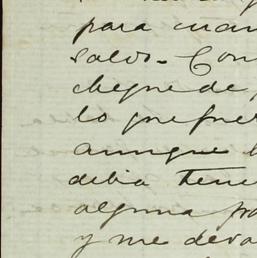 para cuan
saldo. Con
cheque de
lo que fue
aunque l
debia tene
alguna pa
y me deva